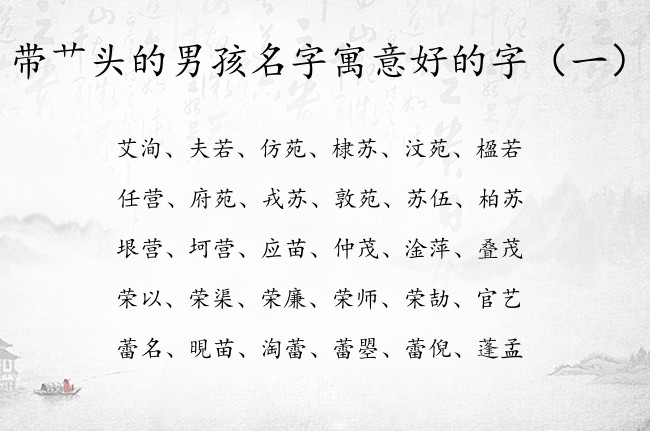 带艹头的男孩名字寓意好的字（一）
艾洵、夫若、仿苑、棣苏、汶苑、楹若
任营、府苑、戎苏、敦苑、苏伍、柏苏
垠营、坷营、应苗、仲茂、淦萍、叠茂
荣以、荣渠、荣廉、荣师、荣劼、官艺
蕾名、晛苗、淘蕾、蕾曌、蕾倪、蓬孟